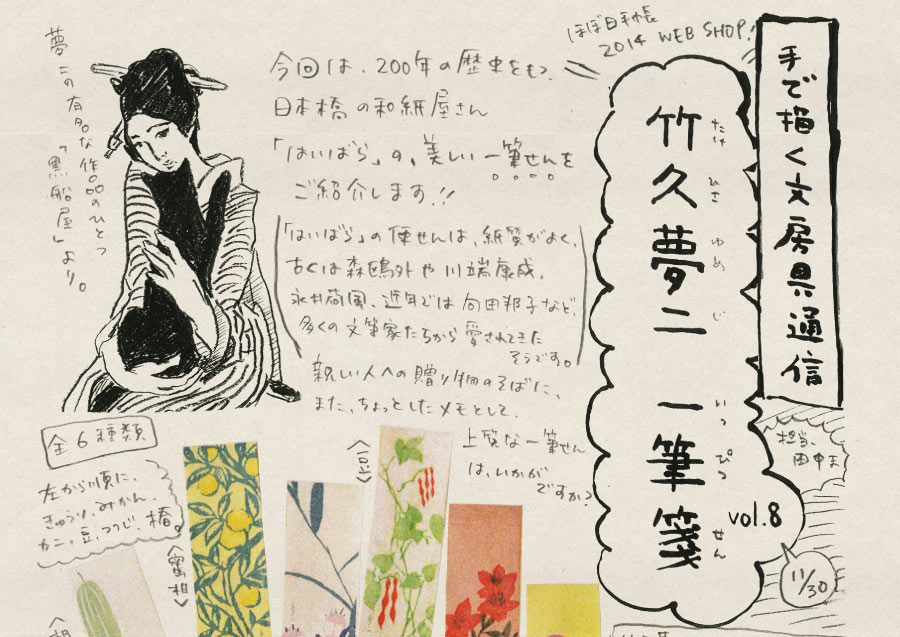 ほぼ日手帳
2014 WEB SHOP!
手で描く文房具通信
竹久夢二 一筆箋
たけ ひさ ゆめ じ いっ ぴつ せん
vol.8
11/30
担当、
田中ま
今回は、200年の歴史をもつ、
日本橋の和紙屋さん
「はいばら」の、美しい一筆せんを
ご紹介します!!
「はいばら」の便せんは、紙質がよく、
古くは森鴎外や川端康成、
永井荷風、近年では向田邦子など、
多くの文筆家たちから愛されてきた
そうです。
親しい人への贈り物のそばに、
また、ちょっとしたメモとして、
上質な一筆せん
は、いかが
ですか?
夢二の有名な作品のひとつ
「黒船屋」より。
全6種類
左から順に、
きゅうり、みかん、
カニ、豆、つつじ、椿。
〈蜜柑〉
〈豆〉